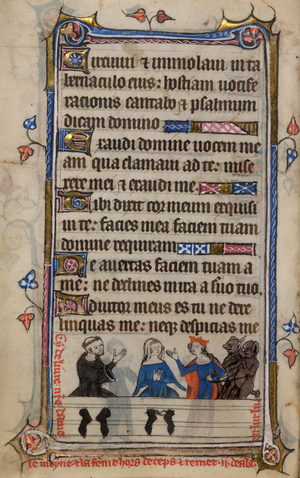 Circuiui & immolaui in ta
bernaculo eius: hostiam uocife
rationis cantabo & psalmum
dicam domino
Exaudi domine uocem me
am qua clamaui ad te: mise
rere mei & exaudi me
Tibi dixit cor meum exquisi
uit te: facies mea faciem tuam
domine requiram
Ne auertas faciem tuam a
me: ne declines in ira a seruo tuo
Adiutor meus es tu ne dere
linquas me: neq; despicias me
Cy deliure nre dame
le moyne & la feme hors de ceps & remet .ij. deabl